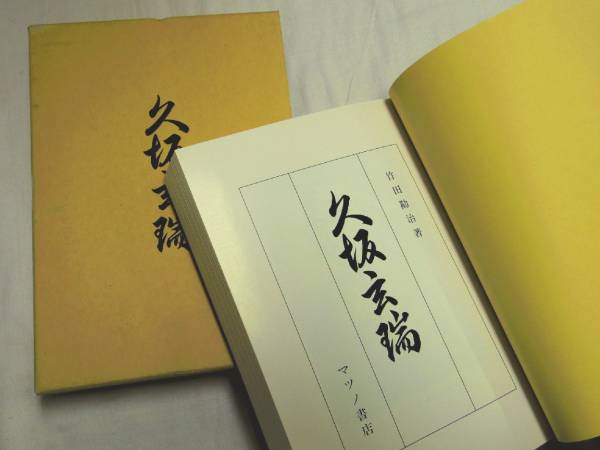 久坂玄瑞
竹田勘治著
久坂玄瑞
マツノ書店